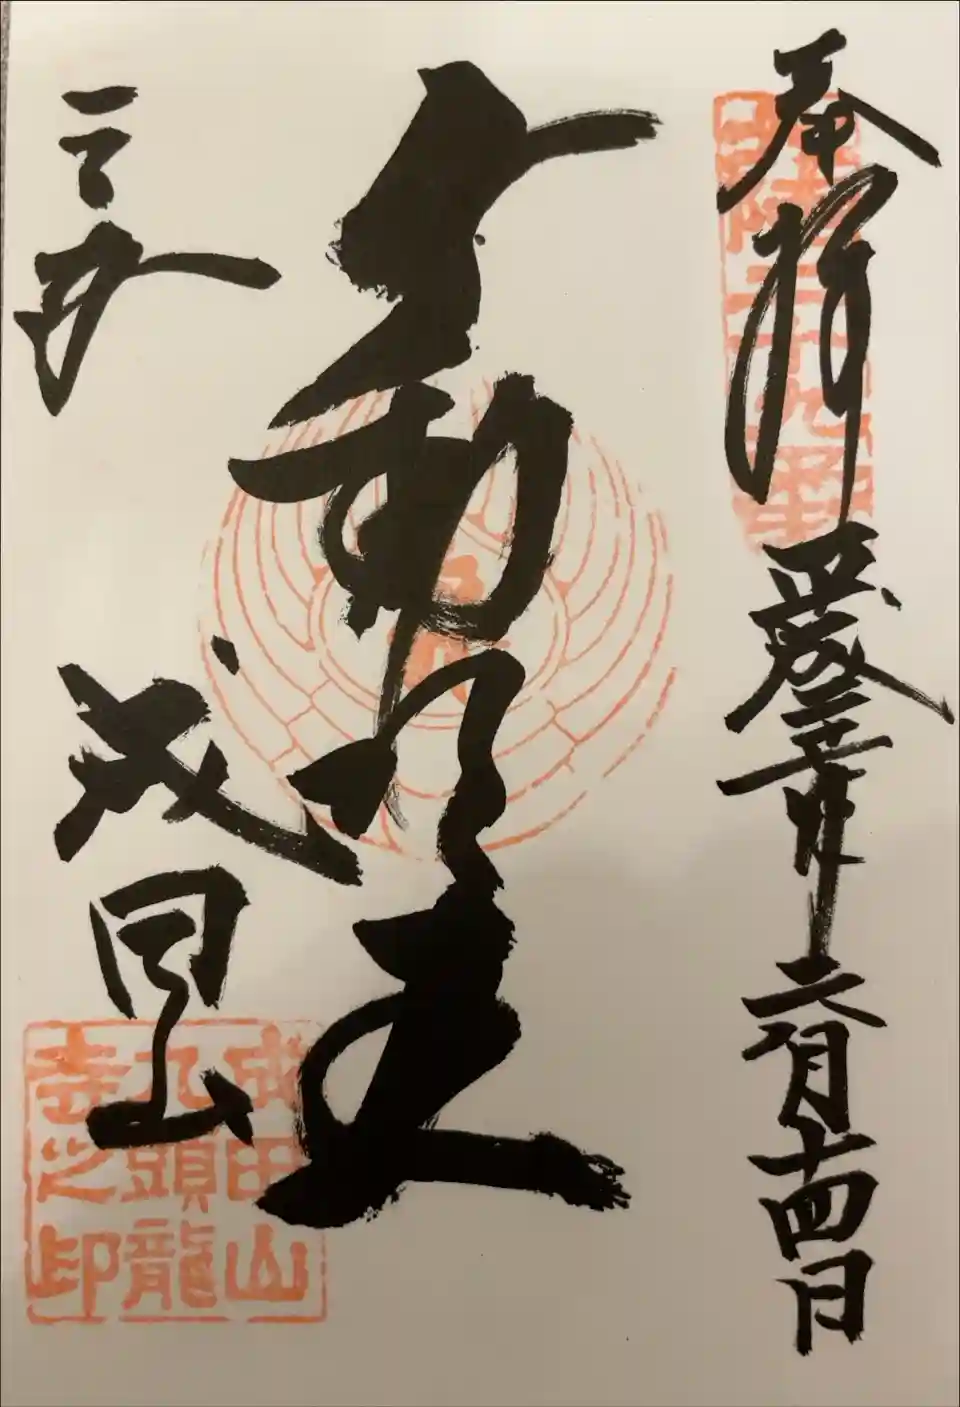 奉拝 平成三十年六月十四日
北陸二十九番
不動明王
三国
成田山
成田山
九頭龍
寺之印